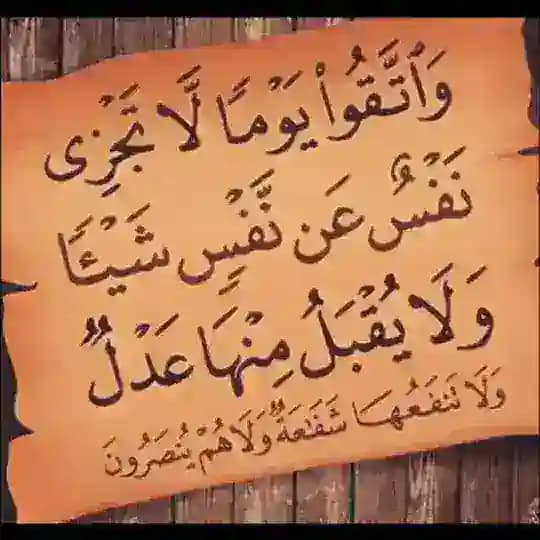 وَٱتَّقُوا۟ يَوْمًا لَّا تَجْزِى
نَفْسٌ عَن نَّفْسٍ شَيْـًٔا
وَلَا يُقْبَلُ مِنْهَا عَدْلٌ
وَلَا تَنفَعُهَا شَفَـٰعَةٌ وَلَا هُمْ يُنصَرُونَ